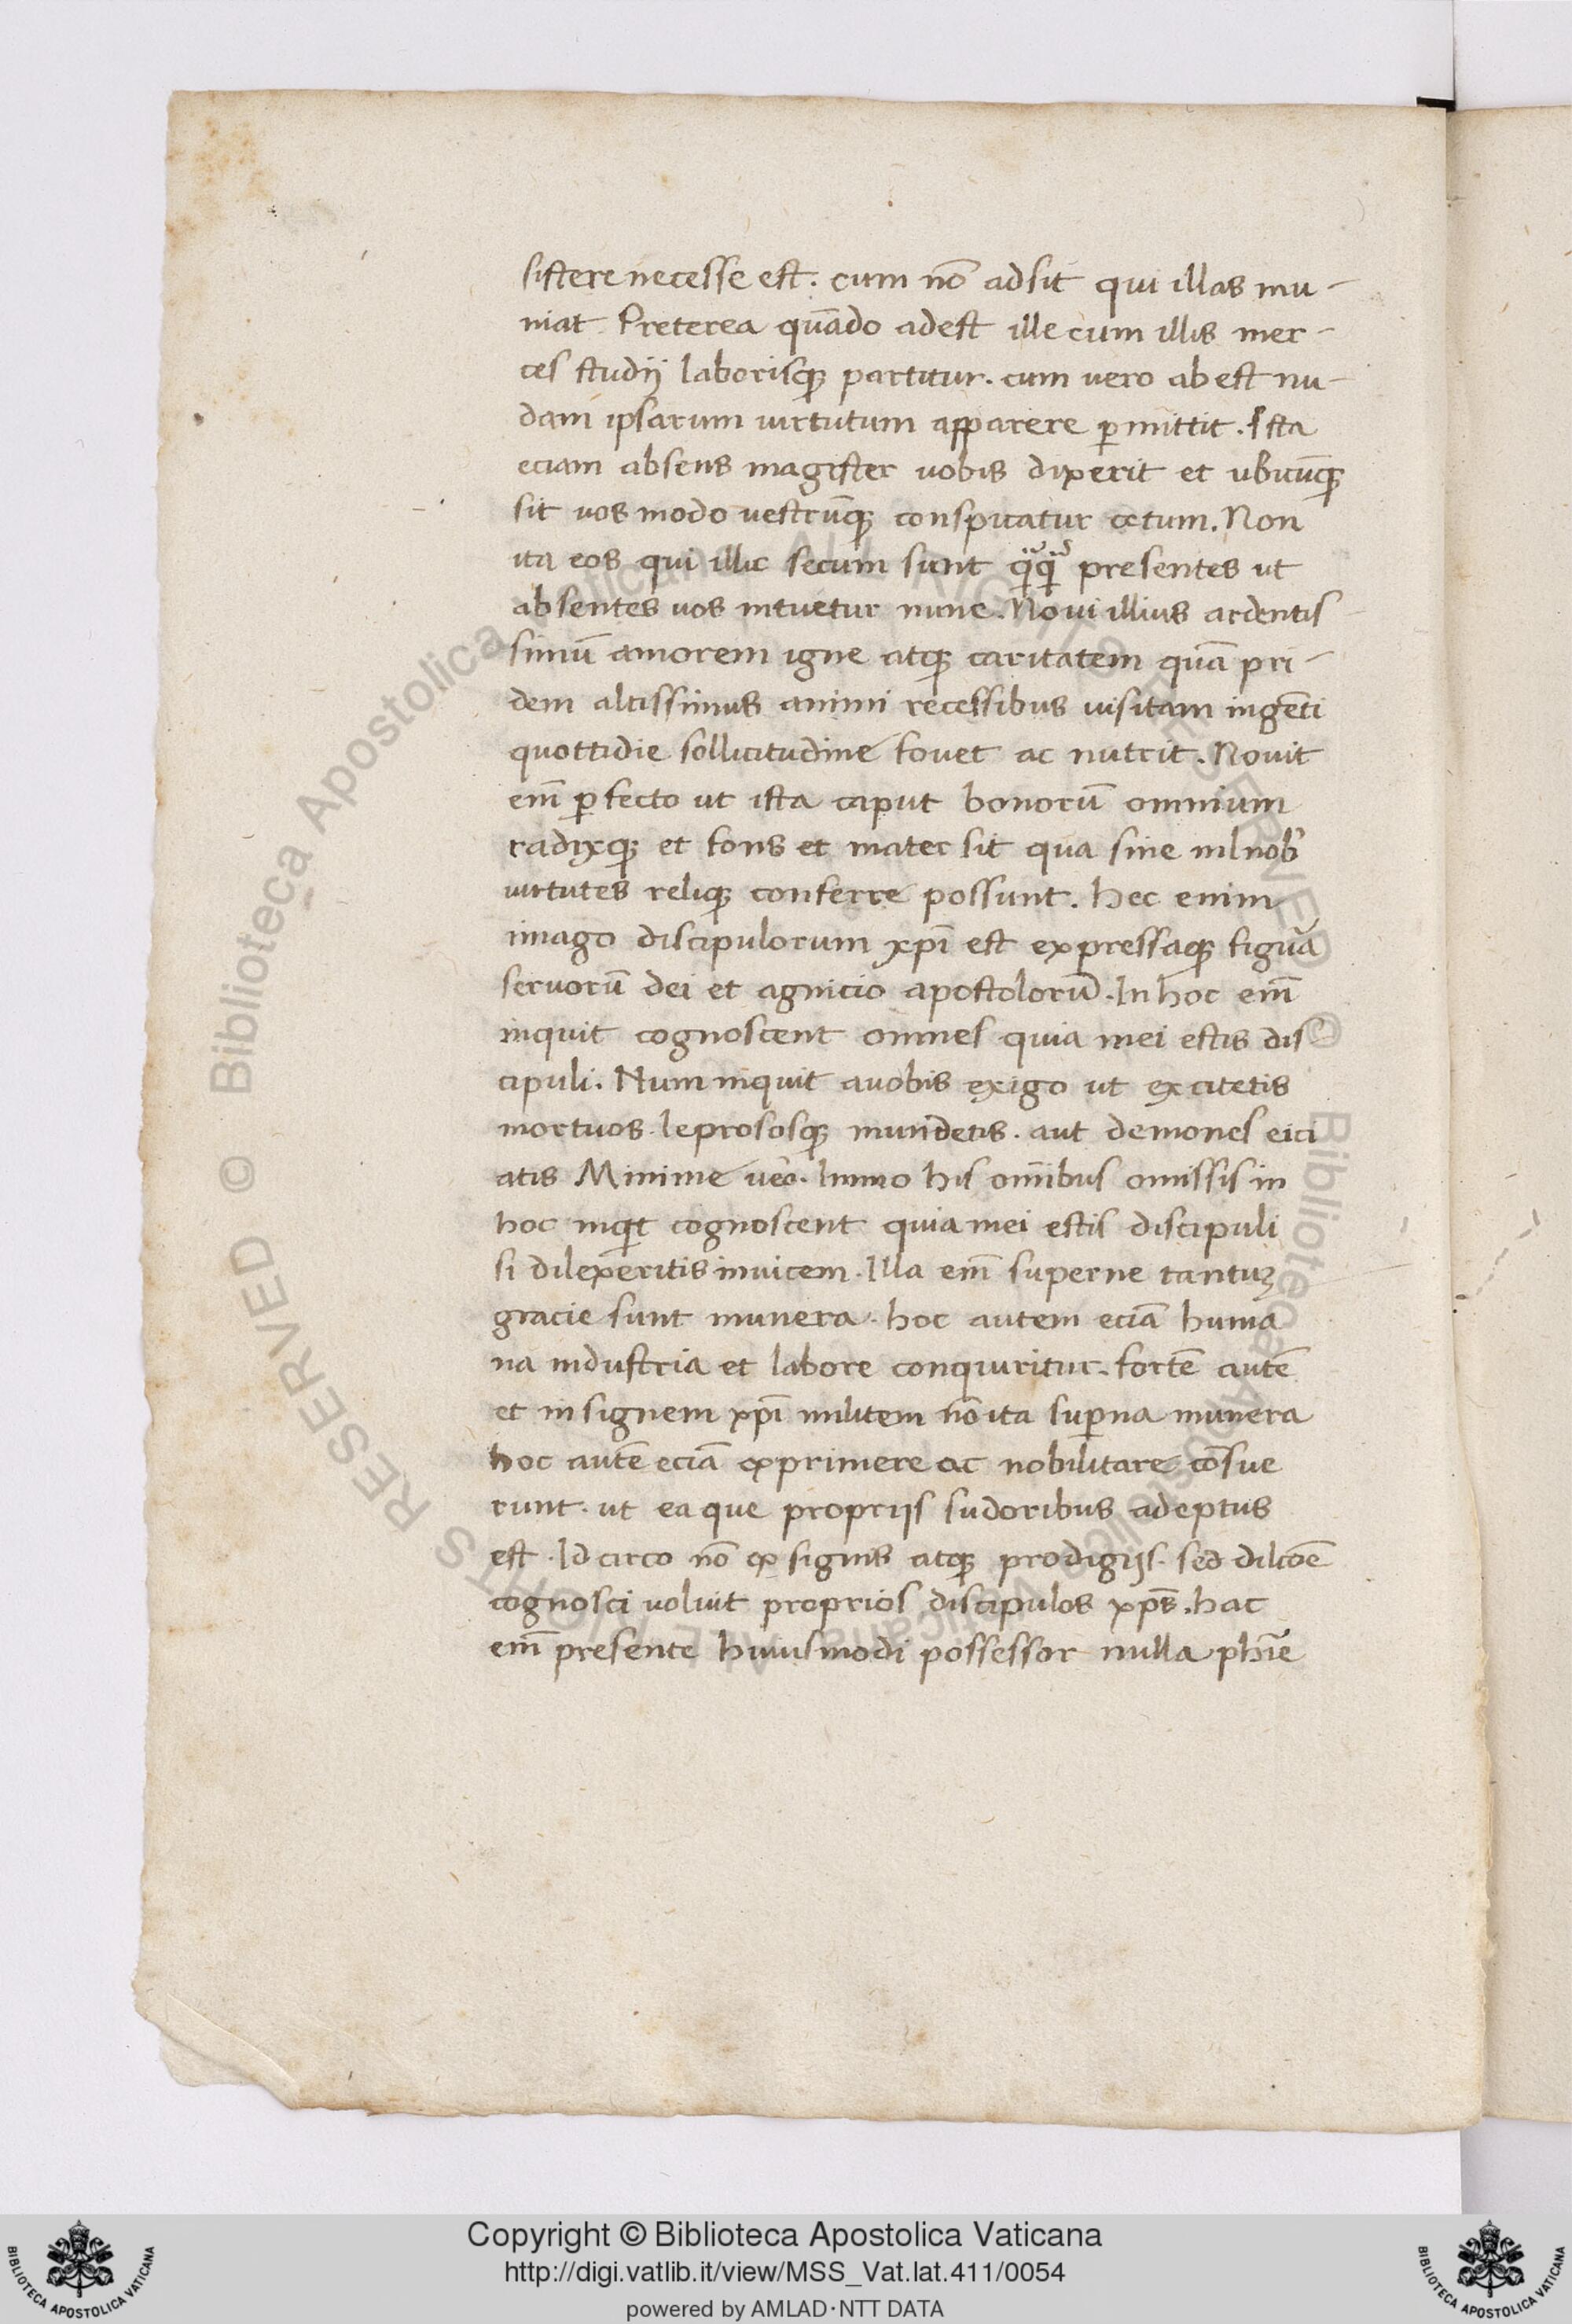 sistere necesse est. cum nō adsit qui illas mu-
niat. Preterea quādo adest ille cum illis mer-
ces studij laborisqꝫ partitur. cum vero abest nu-
dam ipsarum uirtutum apparere ꝑmittit. Ista
eciam absens magister uobis dixerit et ubicūqꝫ
sit uos modo uestrūqꝫ conspicatur cetum. Non
ita eos qui illic secum sunt presentes ut
absentes uos intuetur nunc. Noui illius ardentis
simū amorem igne atqꝫ caritatem quā pri-
dem altissimus animi recessibus uisitam ingēti
quottidie sollicitudine fouet ac nutrit. Nouit
em̄ ꝑfecto ut ista caput bonorū omnium
radixqꝫ et fons et mater sit qua sine nil nob̾
uirtutes reliqꝫ conferre possunt. hec enim
imago discipulorum xp̄i est expressaqꝫ figura
seruorū dei et agnicio apostolorū. In hoc em̄
inquit cognoscent omnes quia mei estis dis
cipuli. Num inquit auobis exigo ut excitetis
mortuos. leprososqꝫ mundetis. aut demones eici
atis Minime ueo. Immo his om̄ibus omissis in
hoc inqͥt cognoscent quia mei estis discipuli
si dilexeritis inuicem. Illa em̄ superne tantuꝫ
gracie sunt munera. hoc autem eciā huma
na industria et labore conquiritur. fortē autē
et insignem xp̄i militem nō ita suꝑna munera
hoc autē eciā exprimere ac nobilitare cōsue
runt. ut ea que proprijs sudoribus adeptus
est. Idcirco nō ex signis atqꝫ prodigijs. sed dilc̄oē
cognosci voluit proprios discipulos xp̄s. hac
em̄ presente huiusmodi possessor nulla phīe
© Biblioteca Apostolica Vaticana ALL RIGHTS RESERVED
© Biblioteca Apostolica Vaticana ALL RIGHTS RESERVED
Copyright © Biblioteca Apostolica Vaticana
http://digi.vatlib.it/view/MSS_Vat.lat.411/0054
powered by AMLAD·NTT DATA
BIBLIOTECA APOSTOLICA VATICANA
BIBLIOTECA APOSTOLICA VATICANA